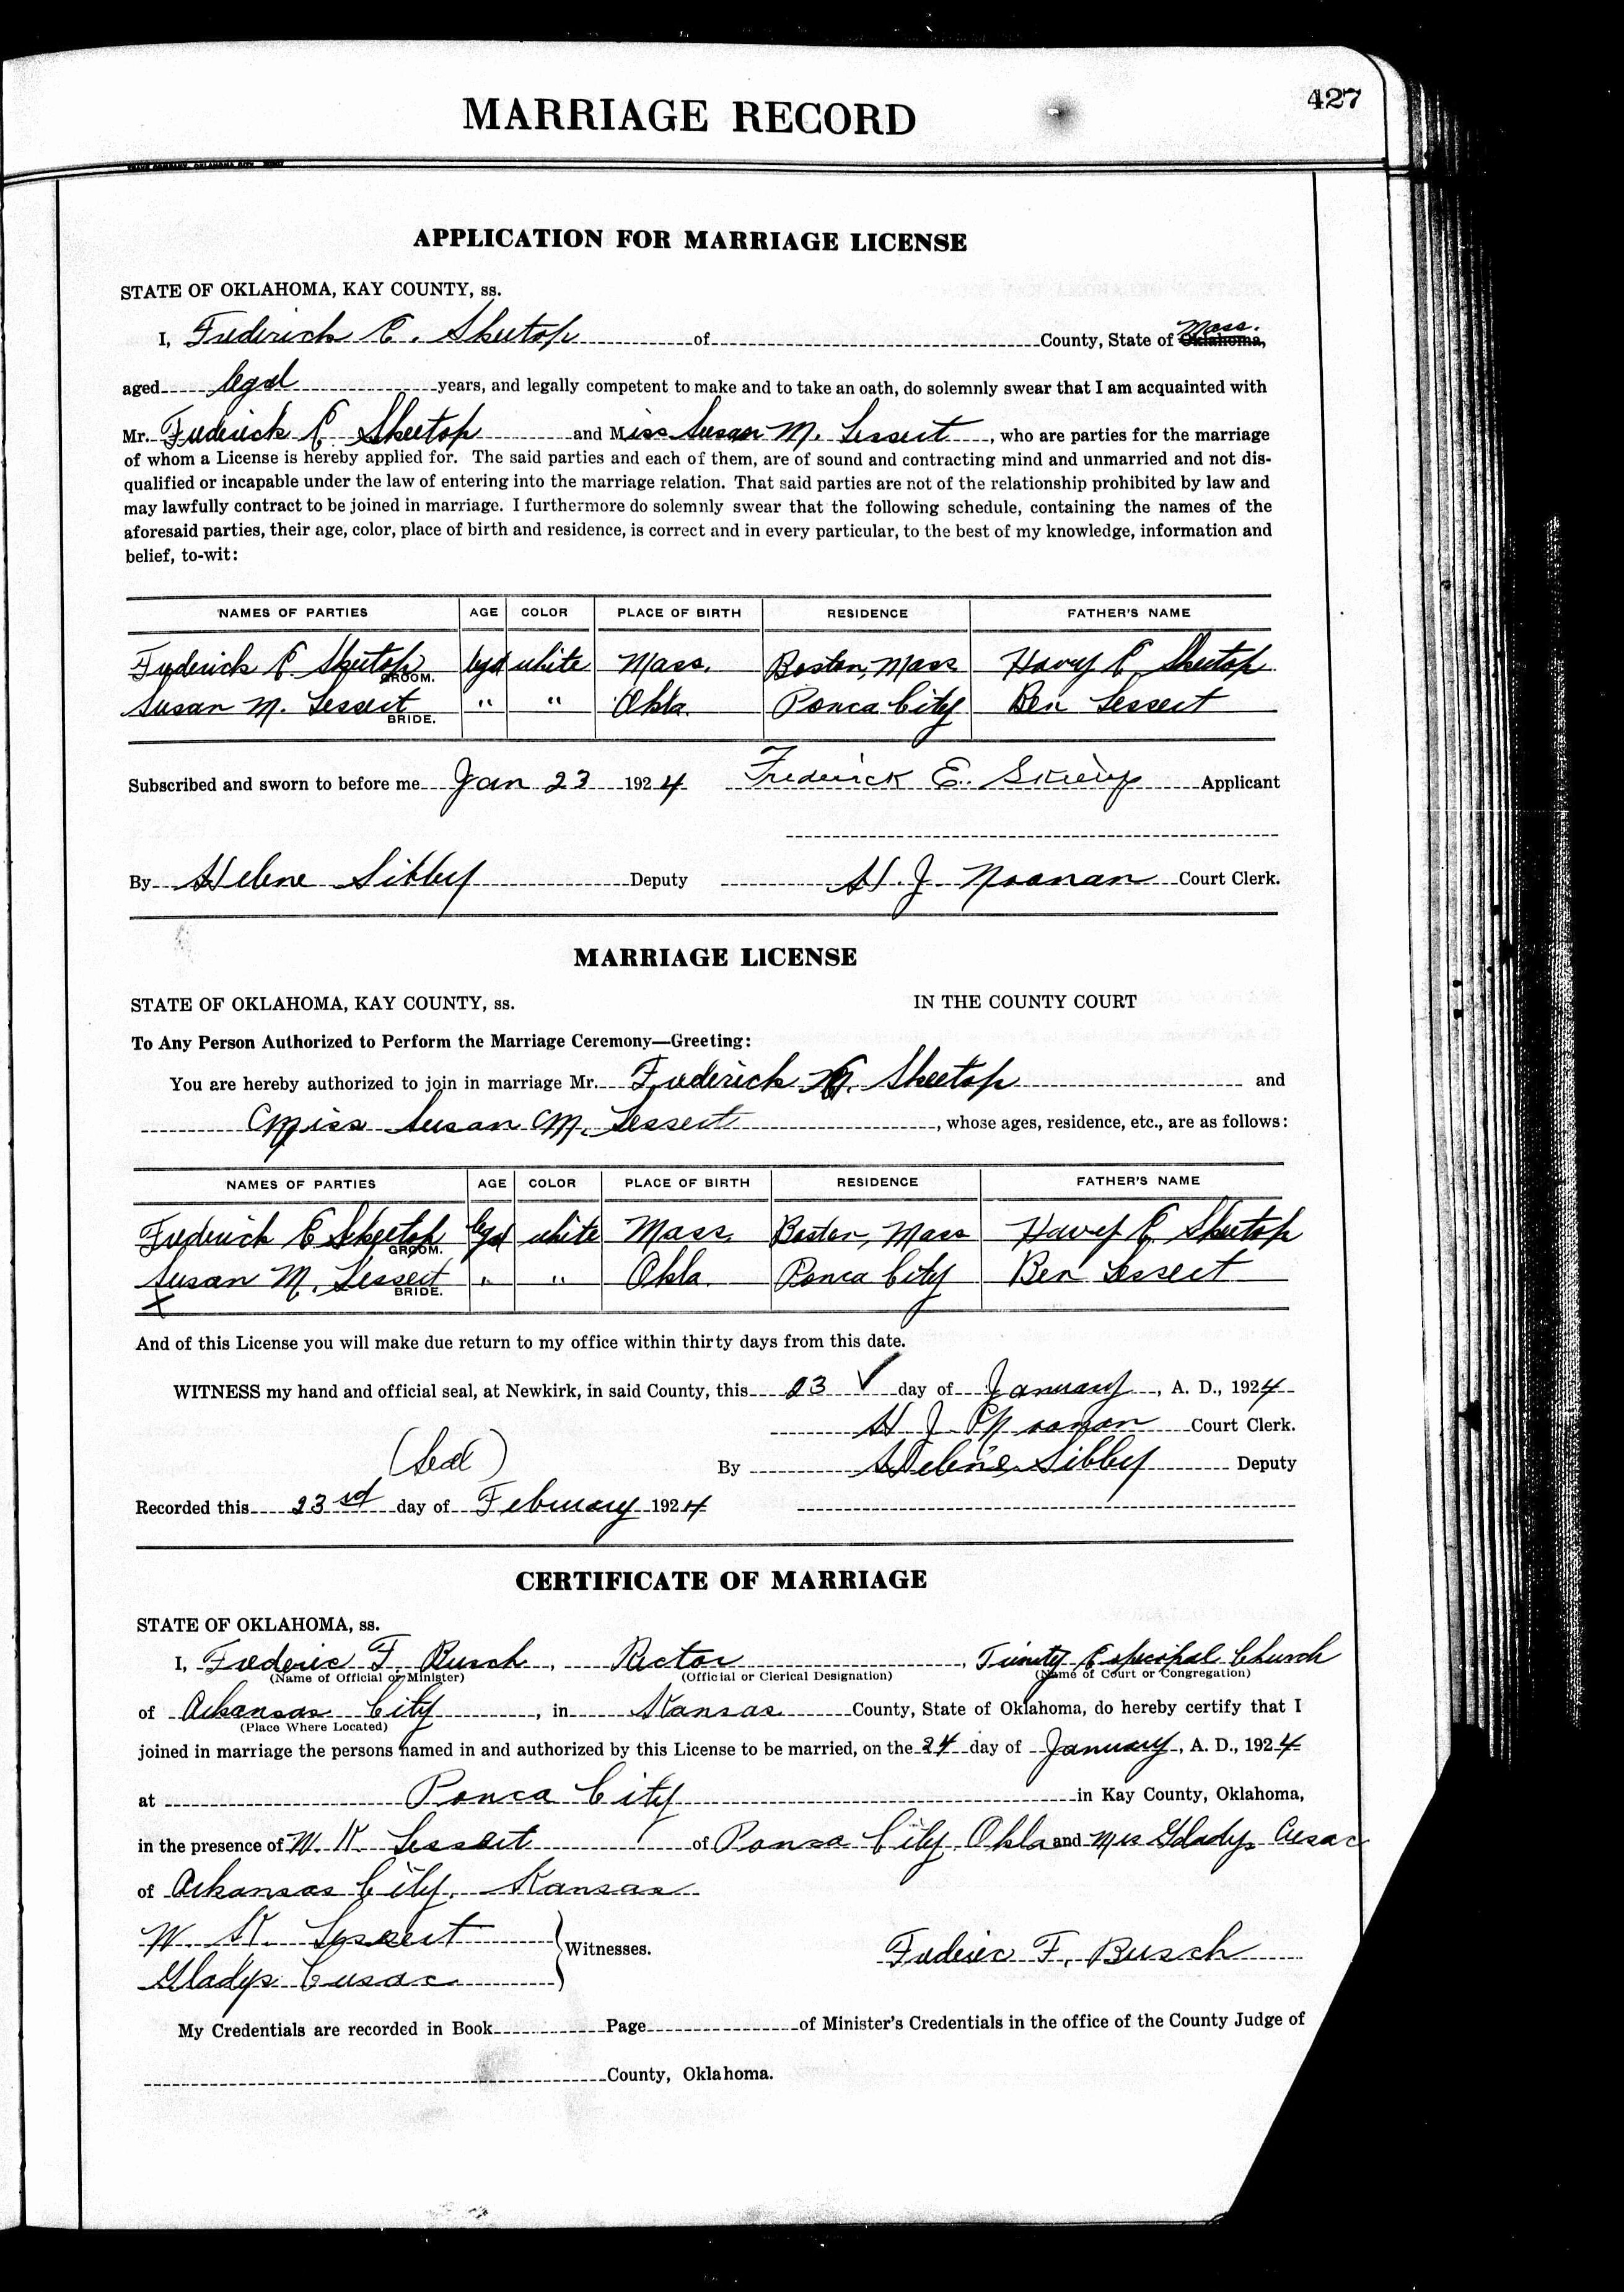 427
MARRIAGE RECORD
APPLICATION FOR MARRIAGE LICENSE
STATE OF OKLAHOMA, KAY COUNTY, ss.
I, Frederick E. Skeetop of County, State of Oklahoma, Mass.
aged legal years, and legally competent to make and to take an oath, do solemnly swear that I am acquainted with
Mr. Frederick E Skeetop and Miss Susan M. Lessert, who are parties for the marriage
of whom a License is hereby applied for. The said parties and each of them, are of sound and contracting mind and unmarried and not dis-
qualified or incapable under the law of entering into the marriage relation. That said parties are not of the relationship prohibited by law and
may lawfully contract to be joined in marriage. I furthermore do solemnly swear that the following schedule, containing the names of the
aforesaid parties, their age, color, place of birth and residence, is correct and in every particular, to the best of my knowledge, information and
belief, to-wit:
NAMES OF PARTIES AGE COLOR PLACE OF BIRTH RESIDENCE FATHER'S NAME
Frederick E Skeetop GROOM. legal white Mass. Boston, Mass E Skeetop
Susan M. Lessert BRIDE. " " Okla. Ponca City Ben Lessert
Subscribed and sworn to before me Jan 23 1924 Frederick E. Applicant
By Helene Sibby Deputy H. J. Noonan Court Clerk.
MARRIAGE LICENSE
STATE OF OKLAHOMA, KAY COUNTY, ss. IN THE COUNTY COURT
To Any Person Authorized to Perform the Marriage Ceremony—Greeting:
You are hereby authorized to join in marriage Mr. Frederick Skeetop and
Miss Susan M. Lessert, whose ages, residence, etc., are as follows:
NAMES OF PARTIES AGE COLOR PLACE OF BIRTH RESIDENCE FATHER'S NAME
Frederick E Skeetop GROOM. legal white Mass. Boston, Mass E Skeetop
Susan M. Lessert BRIDE. " " Okla. Ponca City Ben Lessert
And of this License you will make due return to my office within thirty days from this date.
WITNESS my hand and official seal, at Newkirk, in said County, this 23 ✓ day of January, A. D., 1924
H J Noonan Court Clerk.
(Seal) By Helene Sibby Deputy
Recorded this 23rd day of February 1924
CERTIFICATE OF MARRIAGE
STATE OF OKLAHOMA, ss.
I, Frederic F. Busch, Rector, Trinity Episcopal Church
(Name of Official or Minister) (Official or Clerical Designation) (Name of Court or Congregation)
of Arkansas City, in Kansas County, State of Oklahoma, do hereby certify that I
(Place Where Located)
joined in marriage the persons named in and authorized by this License to be married, on the 24 day of January, A. D., 1924
at Ponca City in Kay County, Oklahoma,
in the presence of W. H. Lessert of Ponca City, Okla and Mrs Gladys Cusac
of Arkansas City, Kansas
W. H. Lessert
Witnesses.
Frederic F. Busch
Gladys Cusac
My Credentials are recorded in Book Page of Minister's Credentials in the office of the County Judge of
County, Oklahoma.